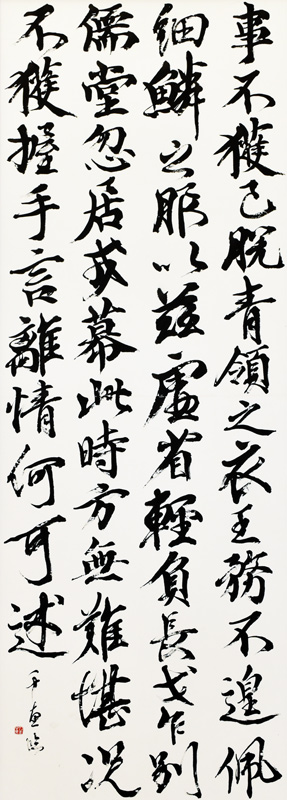 事不獲已脫青領之衣王務不遑佩
細鱗之服以茲虛省輕負長戈乍別
儒堂忽居戎幕此時方無難堪況
不獲握手言離情何可述